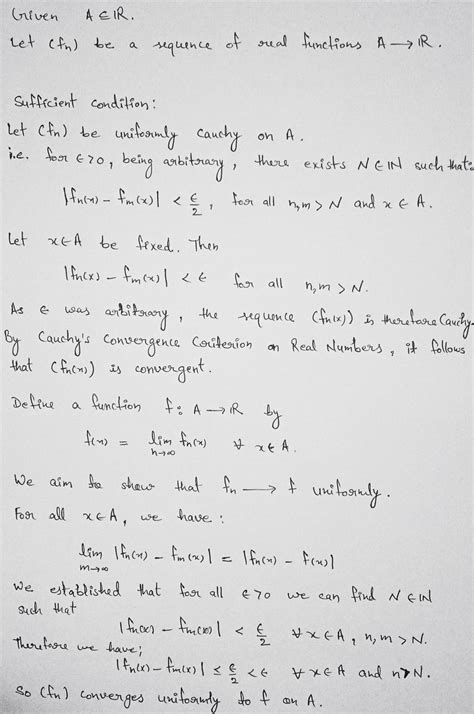 Given A ⊆ ℝ.
Let (fn) be a sequence of real functions A → ℝ.
Sufficient condition:
Let (fn) be uniformly cauchy on A.
i.e. for ε>0, being arbitrary, there exists N ∈ ℕ such that:
|fn(x) - fm(x)| < ε/2, for all n,m > N and x ∈ A.
Let x ∈ A be fixed. Then
|fn(x) - fm(x)| < ε for all n,m > N.
As ε was arbitrary, the sequence (fn(x)) is therefore Cauchy.
By Cauchy's Convergence Criterion on Real Numbers, it follows
that (fn(x)) is convergent.
Define a function f: A → ℝ by
f(x) = lim n→∞ fn(x) ∀ x ∈ A.
We aim to show that fn → f uniformly.
For all x ∈ A, we have:
lim m→∞ |fn(x) - fm(x)| = |fn(x) - f(x)|
We established that for all ε>0 we can find N ∈ ℕ
such that
|fn(x) - fm(x)| < ε/2 ∀ x ∈ A, n,m > N.
Therefore we have;
|fn(x) - fm(x)| ≤ ε/2 < ε ∀ x ∈ A and n > N.
So (fn) converges uniformly to f on A.